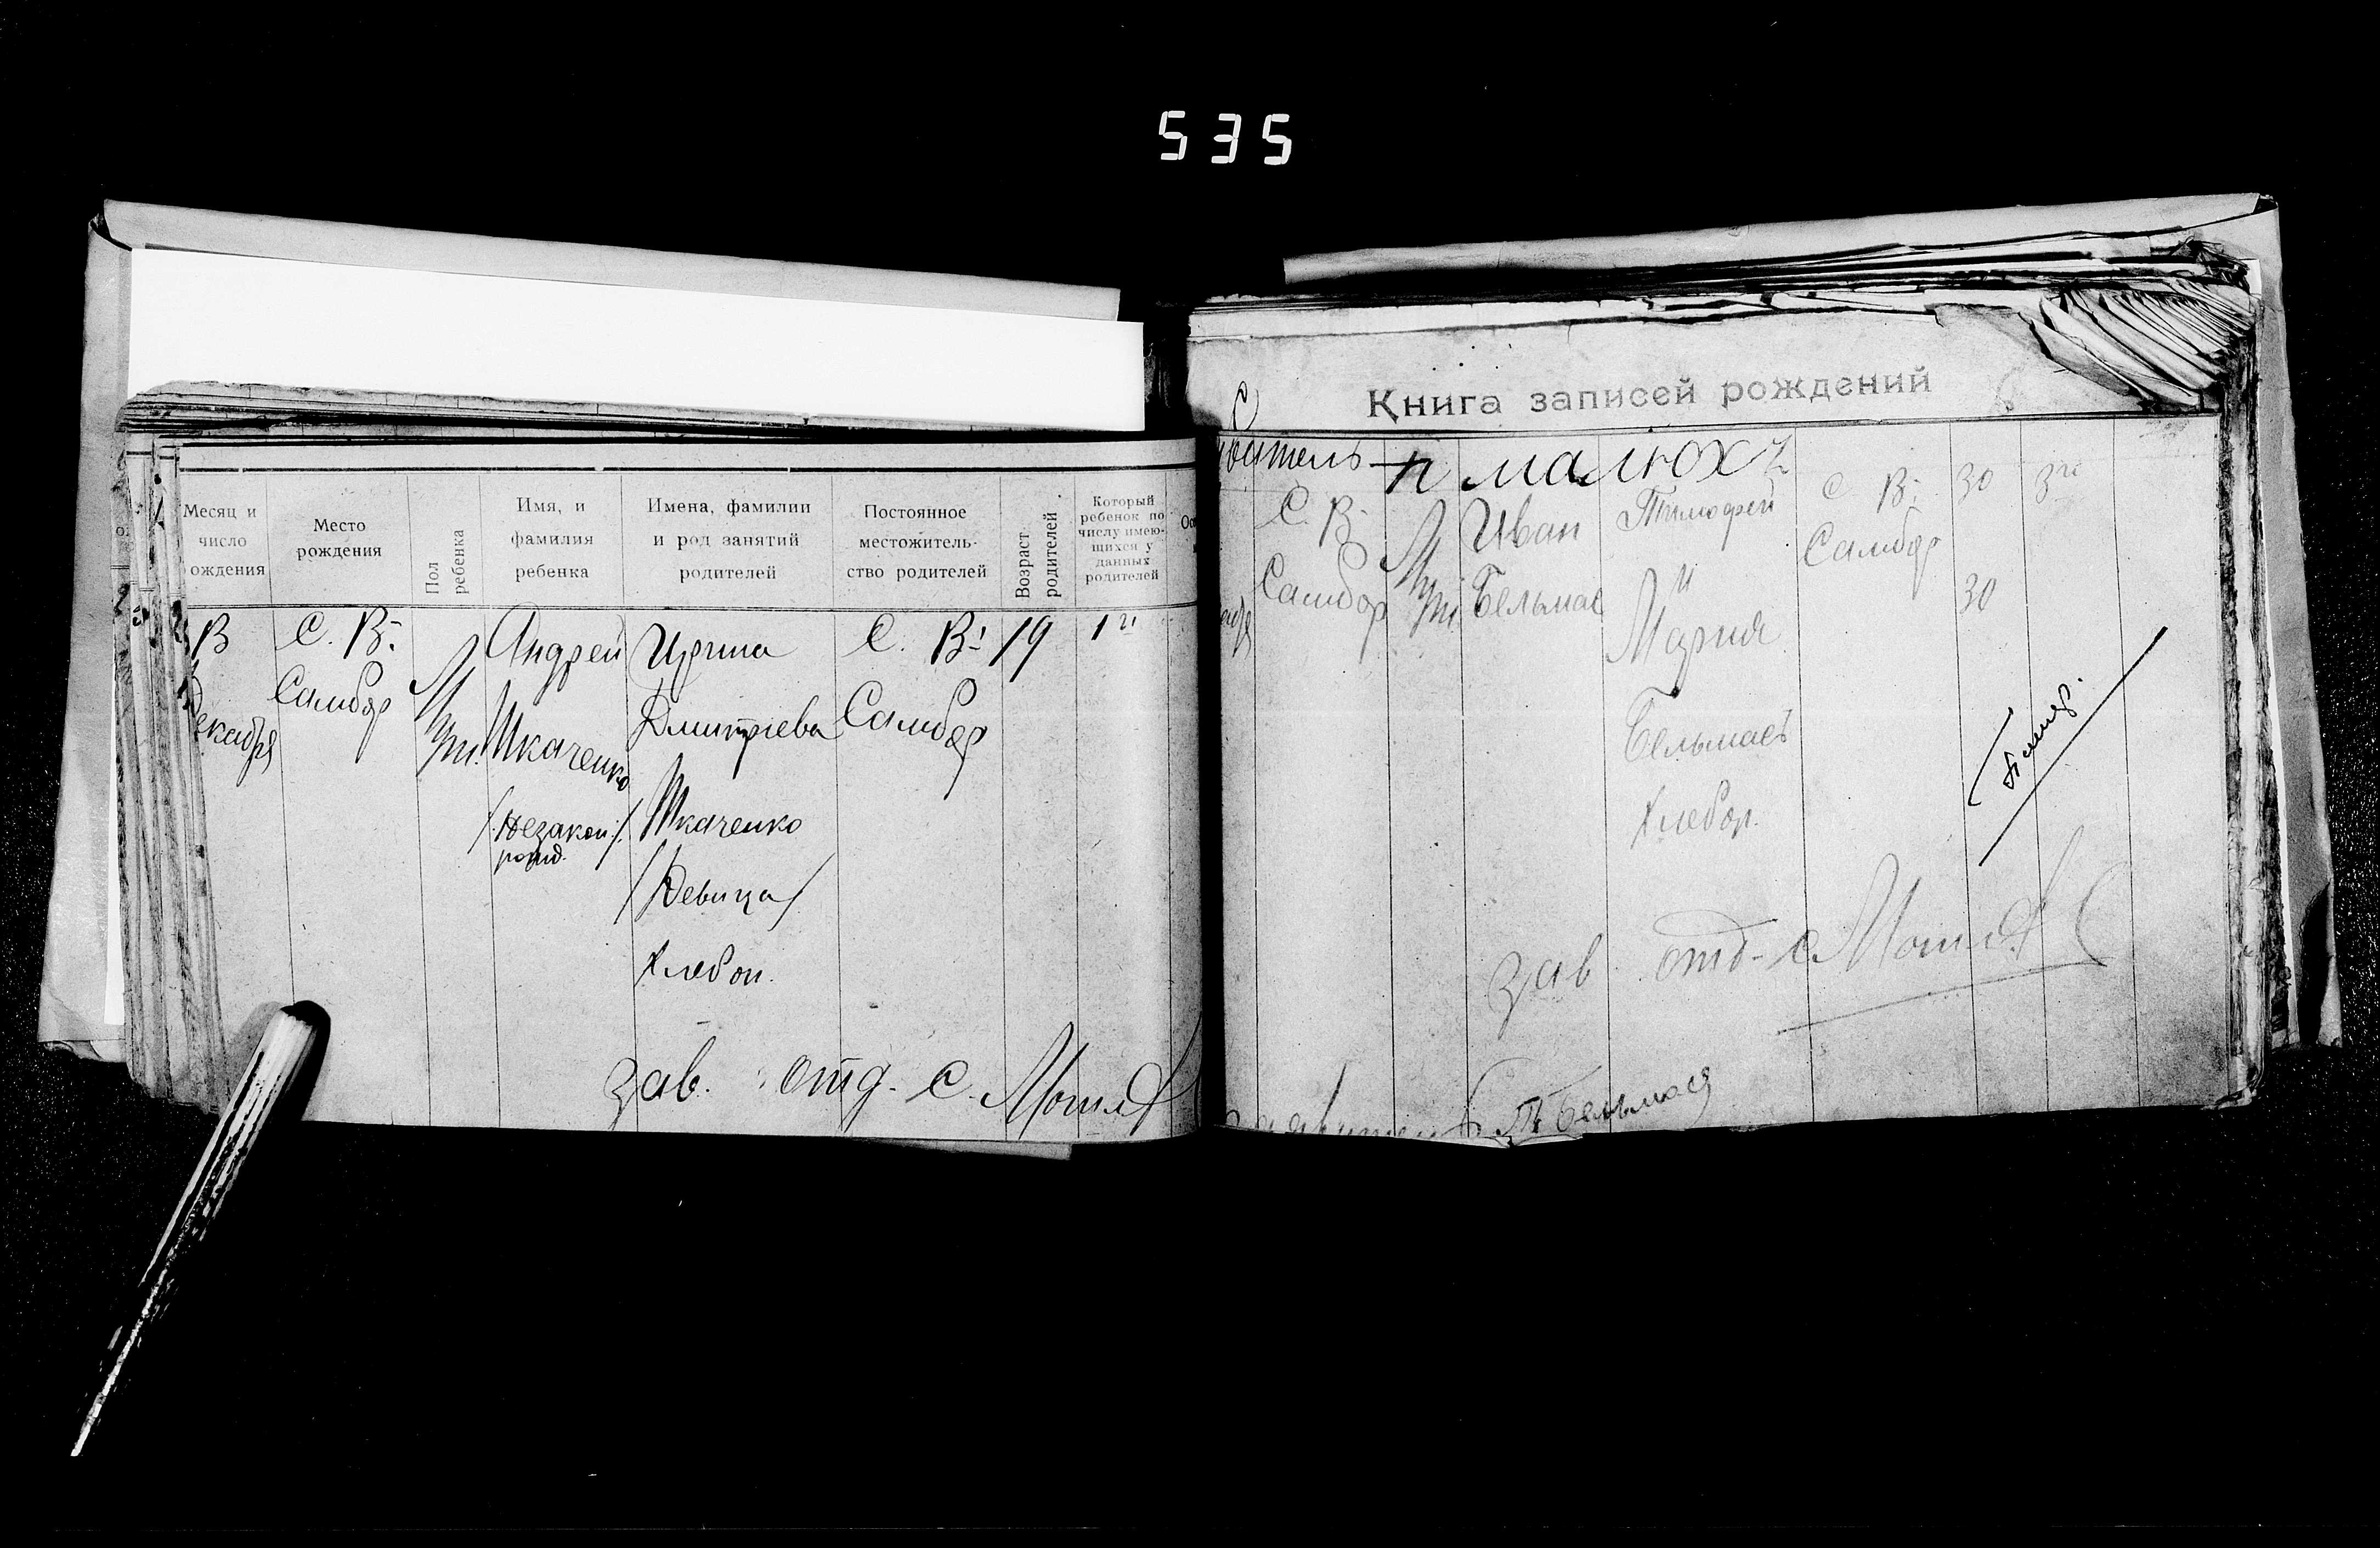 535
Месяц и
число
ождения
Место
рождения
Пол
ребенка
Имя, и
фамилия
ребенка
Имена, фамилии
и род занятий
родителей
Постоянное
местожитель-
ство родителей
Возраст
родителей
Который
ребенок по
числу имею-
щихся у
данных
родителей
В
екабря
С. В-
Самбор
Муж
Андрей
Ткаченко
/незакон./
рожд.
Ирина
Дмитриева
Ткаченко
/Девица/
Хлебоп.
С. В-
Самбор
19
1й
зав. отд. с.
Книга записей рождений
С
итель п малюх
С. В-
Самбор
Иван
Бельмас
Тимофей
и
Мария
Бельмас
Хлебоп.
С В-
Самбор
30
30
3й
зав отд-с
Т Бельмас